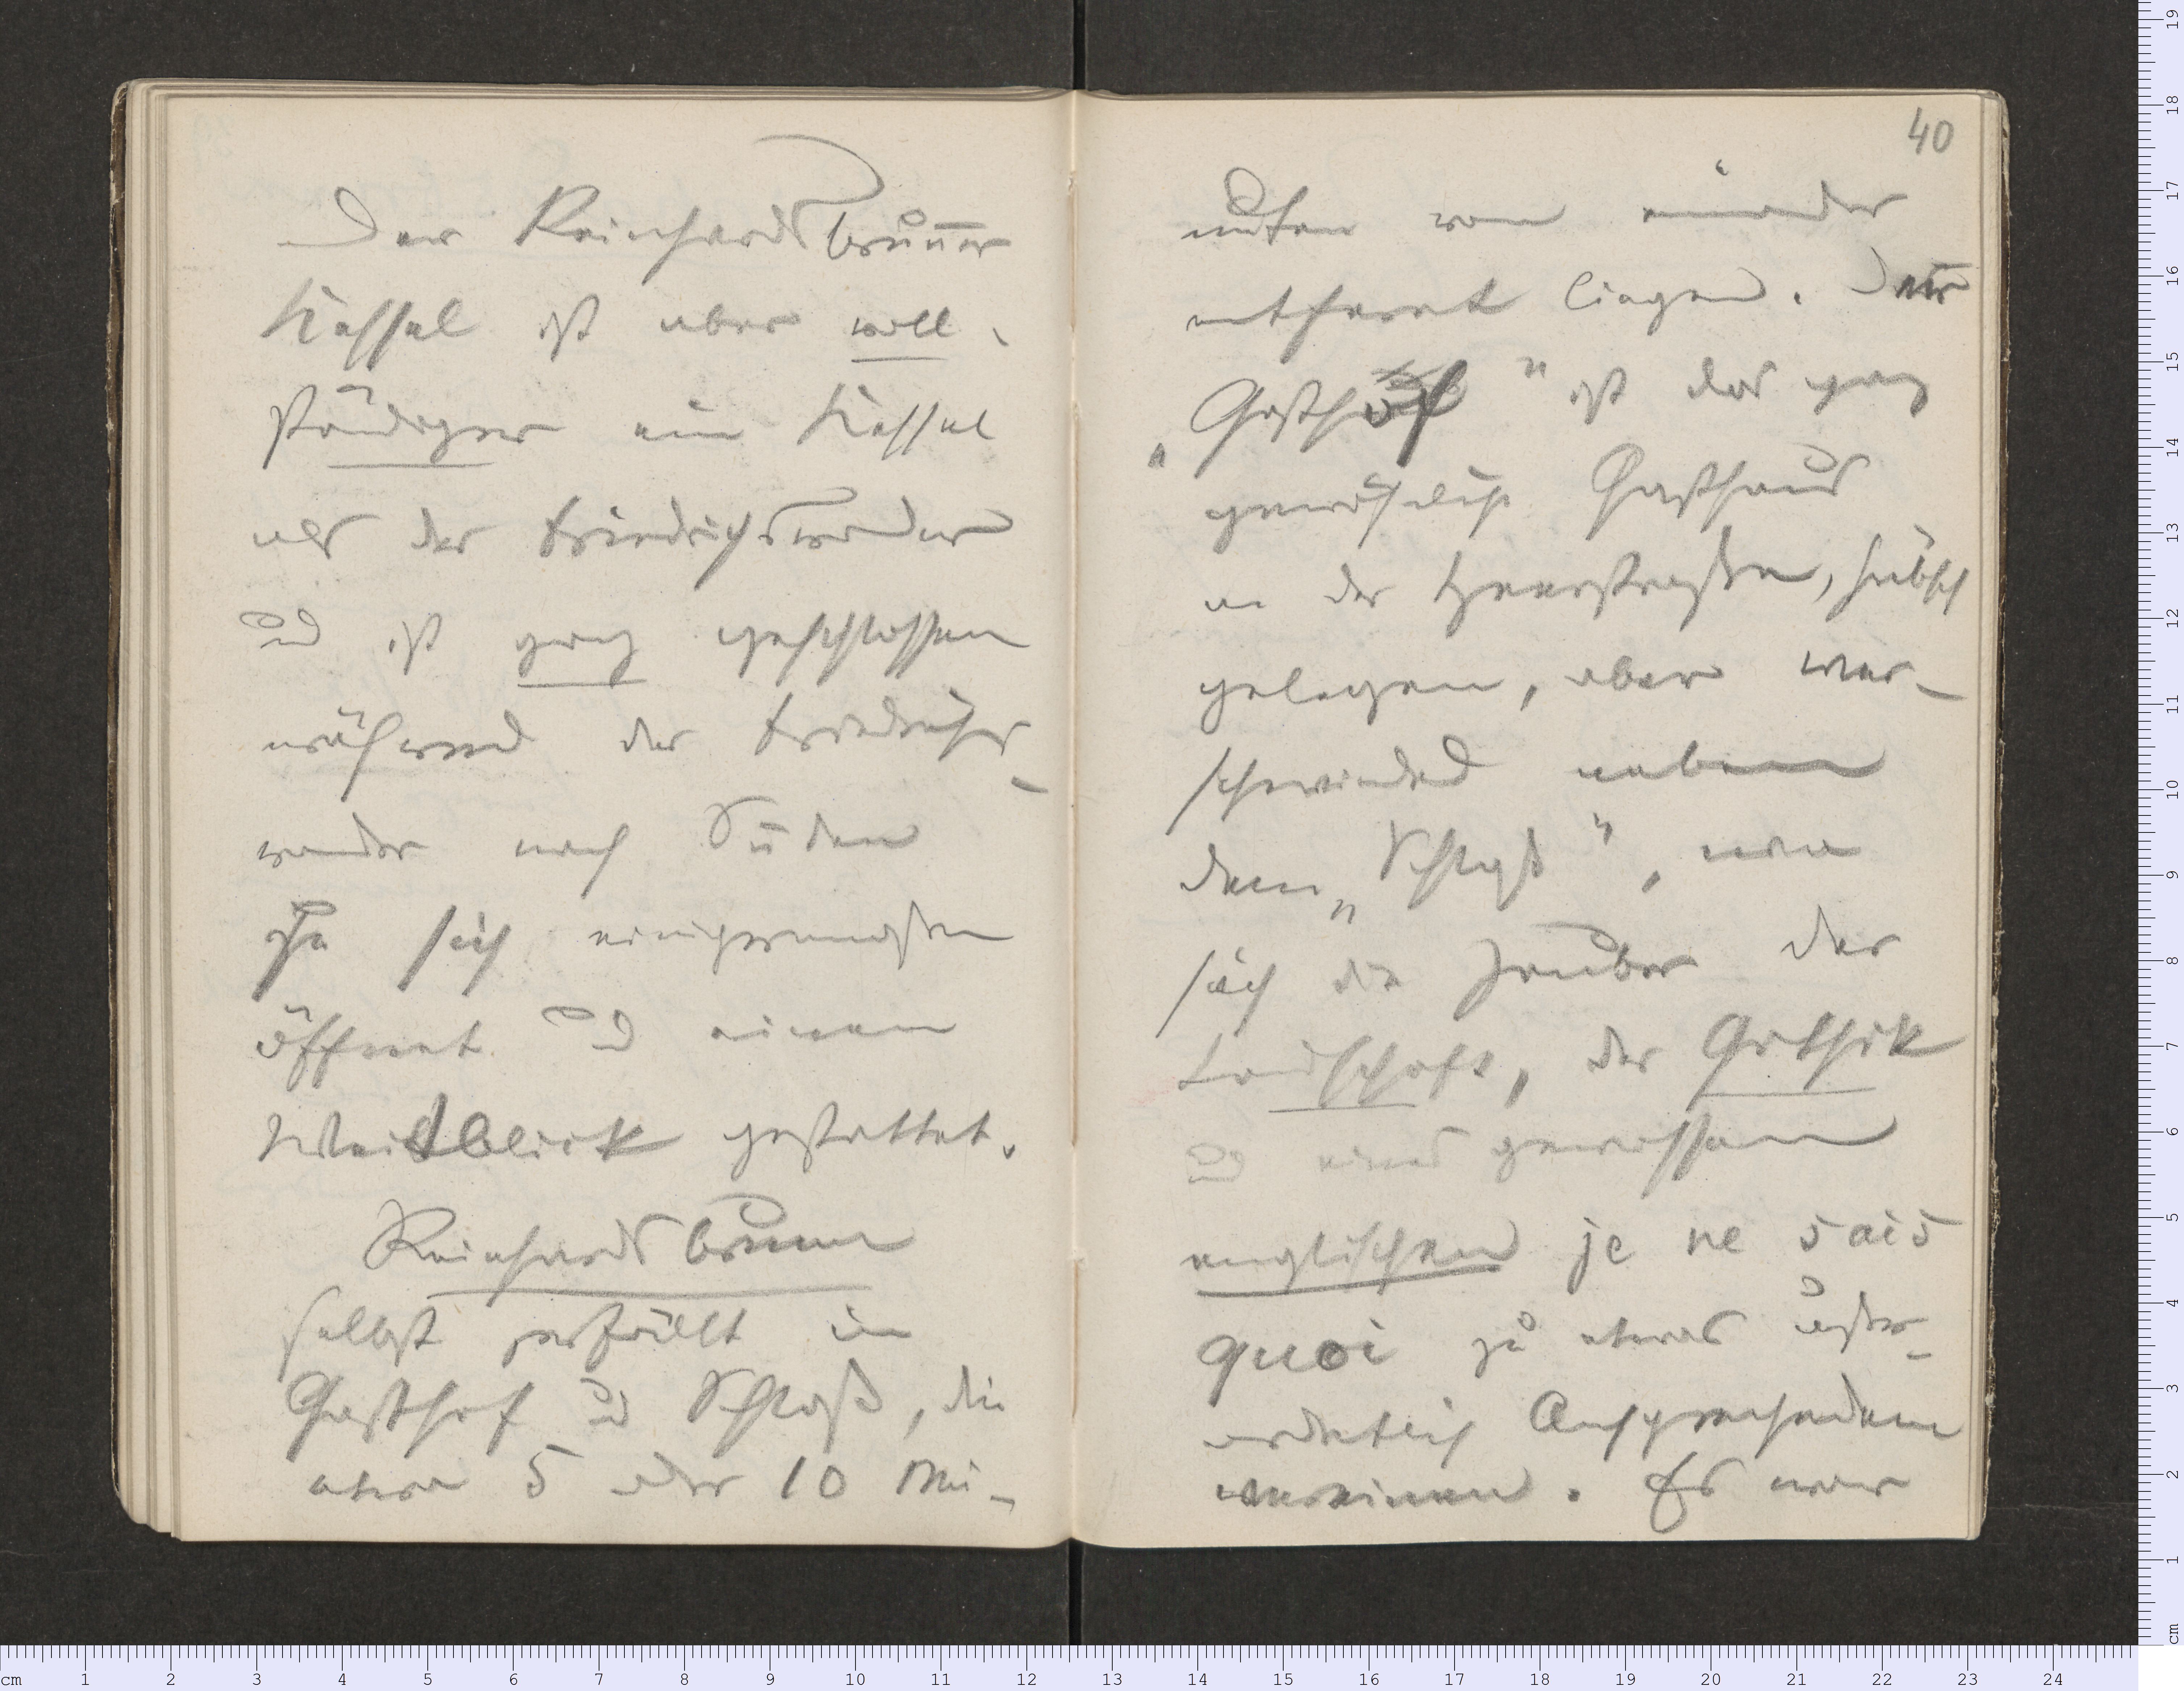 Der Reinhardsbrunner
Kessel ist aber voll-
ständiger ein Kessel
als der Friedrichrodaer
und ist ganz geschlossen
während der Friedrichs-
rodaer nach Süden
zu sich einigermaßen
öffnet und einen
Weitblick gestattet.
Reinhardsbrunn
selbst zerfällt in
Gasthof und Schloß, die
etwa 5 oder 10 Mi-
40
nuten von einander
entfernt liegen. Der
„Gasthof" ist das ganz
gewöhnliche Gasthaus
an der Heerstraße, hübsch
gelegen, aber ver-
schwindend neben
dem „Schloß", wo
sich der Zauber der
Landschaft, der Gothik
und eines gewissen
englischen je ne sais
quoi zu etwas außer-
ordentlich Ansprechendem
vereinen. Es war